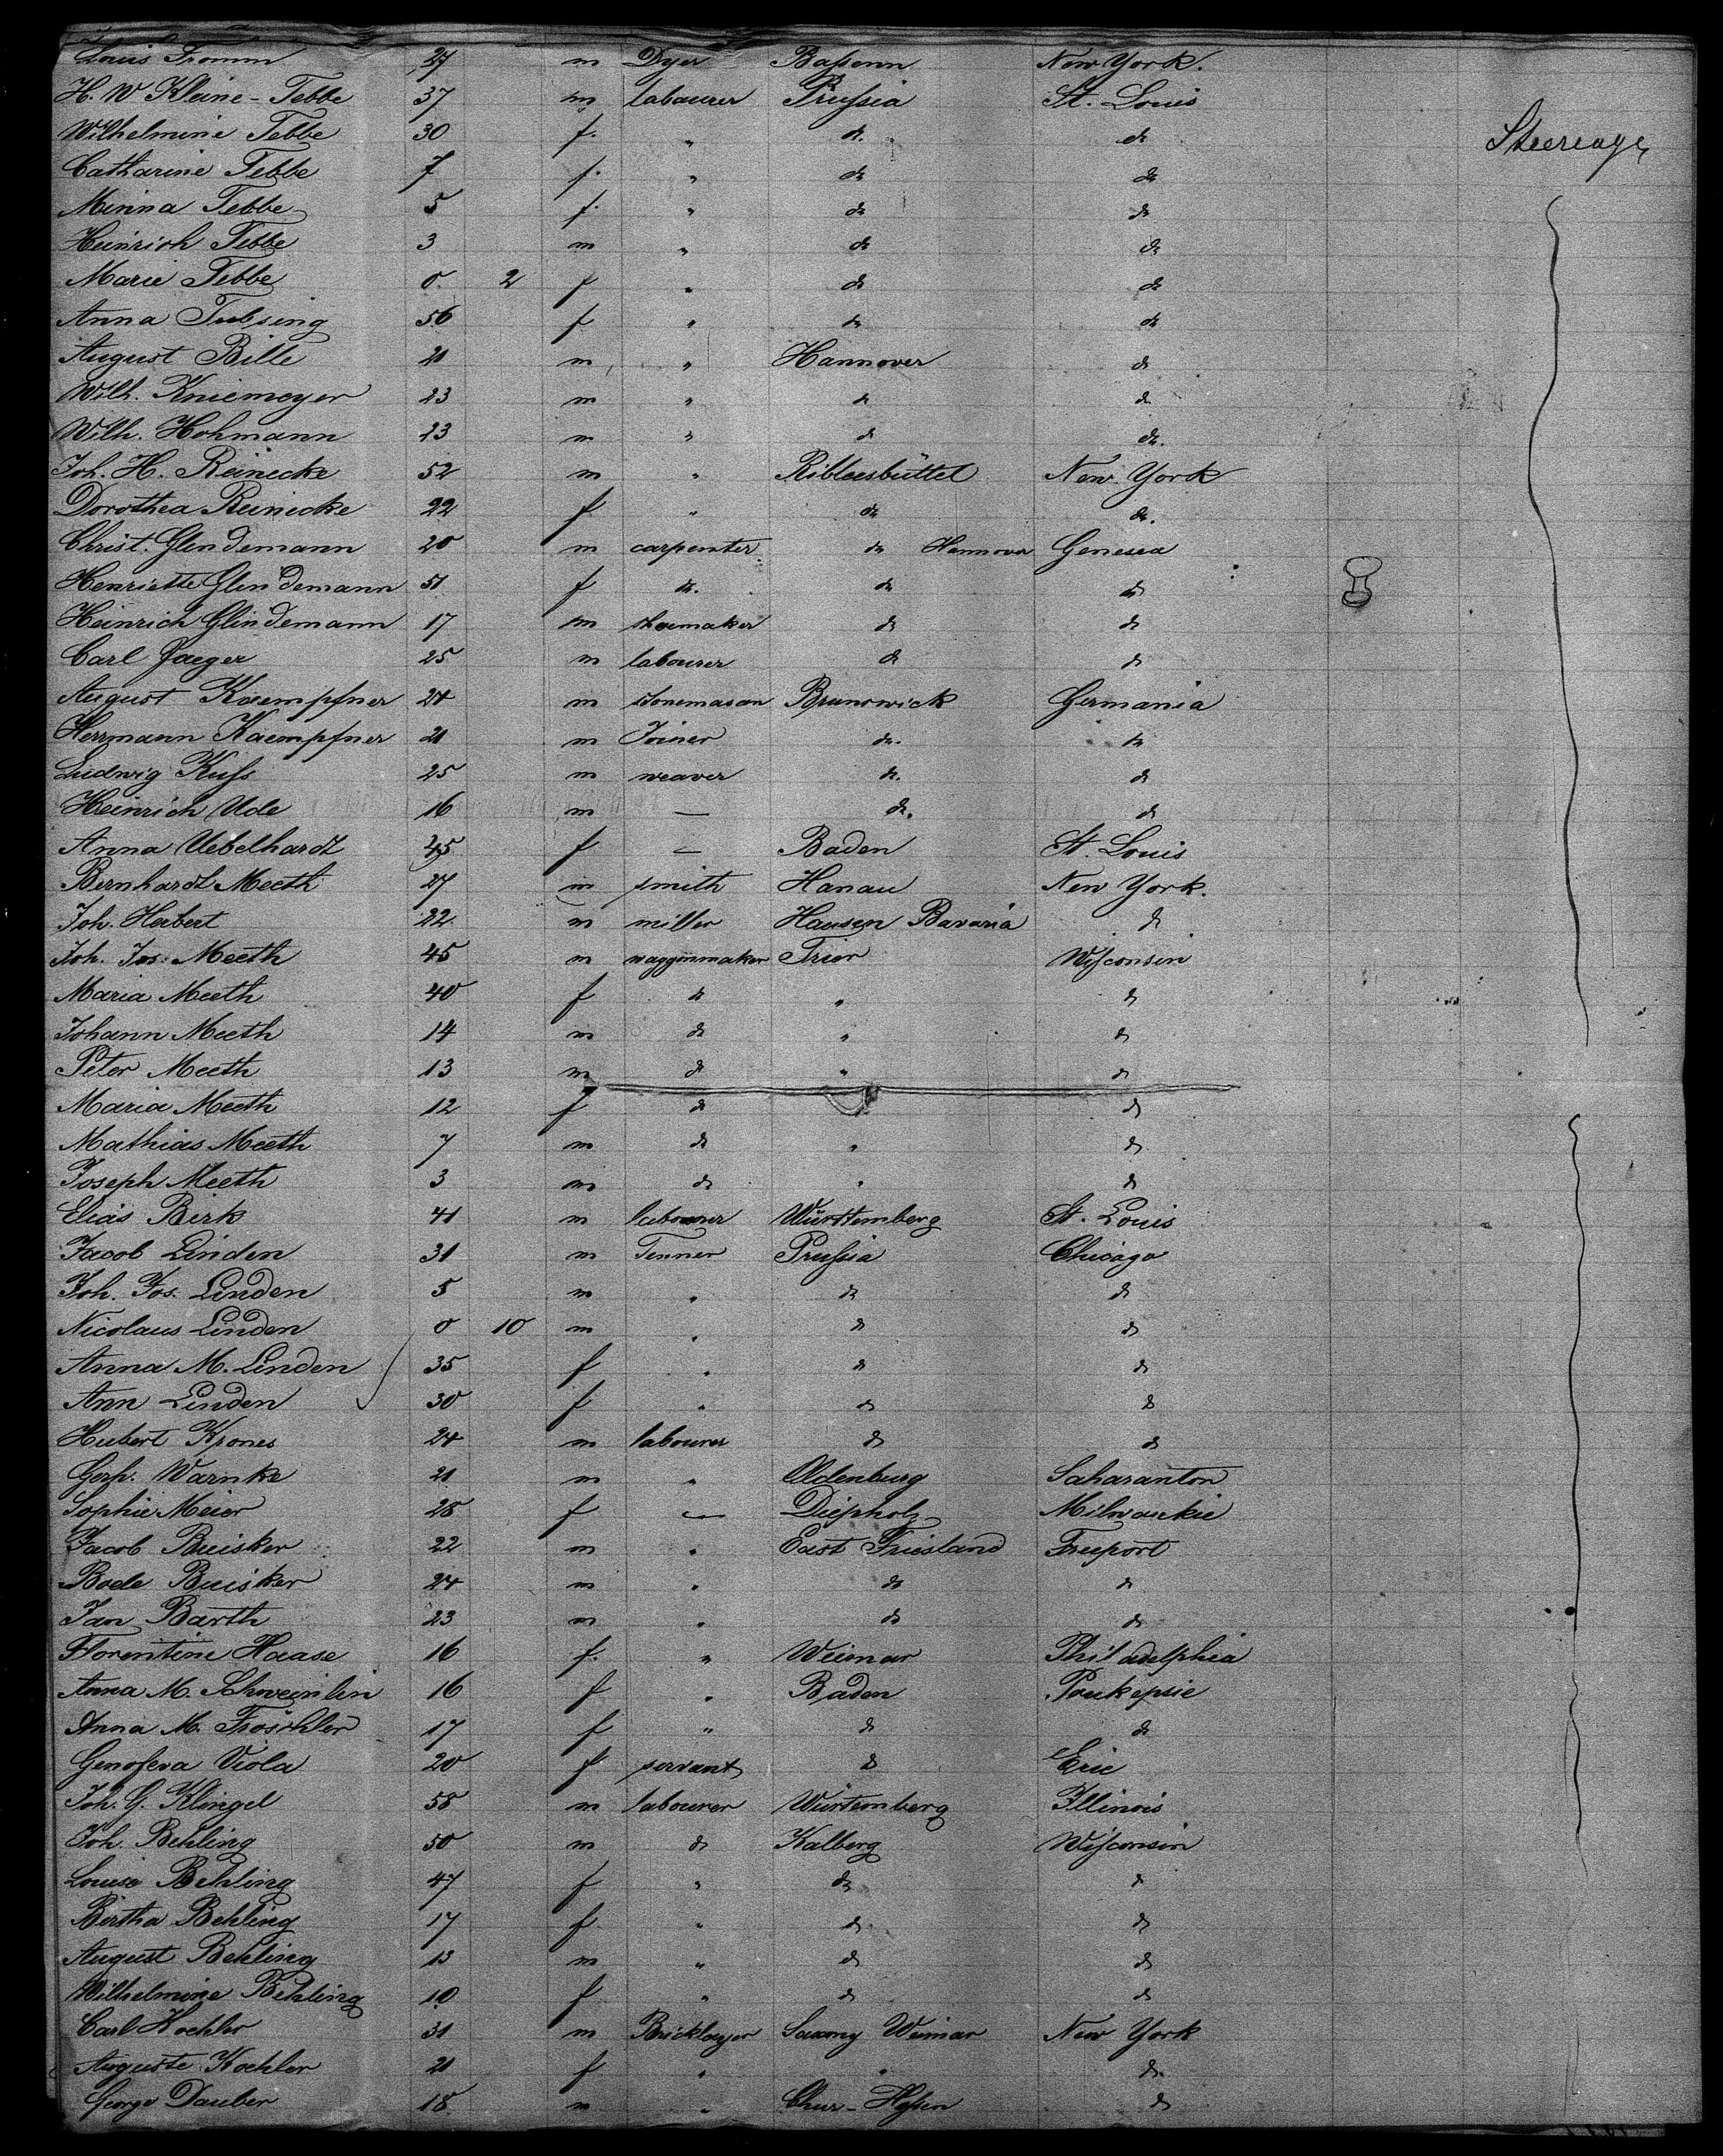 Louis Fromm 27 m Dyer Baßenn New York.
H. W Kleine-Tebbe 37 m labourer Prußia St. Louis Steerage
Wilhelmine Tebbe 30 f. " do. do
Catharine Tebbe 7 f. " do do
Minna Tebbe 5 f. " do do
Heinrich Tebbe 3 m " do do
Marie Tebbe 0. 2 f " do do
Anna Tubsing 56 f " do do
August Bille 21 m " Hannover do
Wilh. Kniemeyer 23 m " do do
Wilh. Hohmann 23 m " do do.
Joh. H. Reinecke 52 m " Ribbesbüttel New York
Dorothea Reinicke 22 f " do do.
Christ. Glindemann 20 m carpenter do Hannover Genesea
Henriette Glindemann 51 f do. do do
Heinrich Glindemann 17 m shoemaker do do
Carl Jaeger 25 m labourer do do
August Kaempfner 24 m stonemason Brunswick Germania
Herrmann Kaempfner 21 m Joiner do. do
Ludwig Kuß 25 m weaver do. do
Heinrich Ude 16 m — do. do
Anna Uebelhardt 45 f — Baden St. Louis
Bernhardt Meeth 27 m smith Hanau New York.
Joh. Herbert 22 m miller Hausen Bavaria do
Joh. Jos. Meeth 45 m waggonmaker Trier Wisconsin
Maria Meeth 40 f do " do
Johann Meeth 14 m do " do
Peter Meeth 13 m do " do
Maria Meeth 12 f do do
Mathias Meeth 7 m do " do
Joseph Meeth 3 m do " do
Elias Birk 41 m labourer Württemberg St. Louis
Jacob Linden 31 m Tenner Prußia Chicago
Joh. Jos. Linden 5 m " do do
Nicolaus Linden 0 10 m " do do
Anna M. Linden 35 f " do do
Ann Linden 30 f " do do
Hubert Krones 24 m labourer do do
Gerh. Warnke 21 m " Oldenburg Saharanton
Sophie Meier 28 f — Diepholz Milwaukie
Jacob Buisker 22 m " East Friesland Freeport
Bode Buisker 24 m " do do
Jan Barth 23 m " do do
Florentine Haase 16 f. " Weimar Philadelphia
Anna M. Schweinlin 16 f " Baden Poukepsie
Anna M. Fröschler 17 f " do do
Genofeva Viola 20 f servant do Erie
Joh. G. Klingel 58 m labourer Würtemberg Illinois
Joh. Behling 50 m do Kalberg Wisconsin
Louise Behling 47 f " do do
Bertha Behling 17 f " do do
August Behling 13 m " do do
Wilhelmine Behling 10 f " do do
Carl Koehler 31 m Bricklayer Saxony Weimar New York
Auguste Koehler 21 f " " do
George Dauber 18 m " Chur-Hessen do